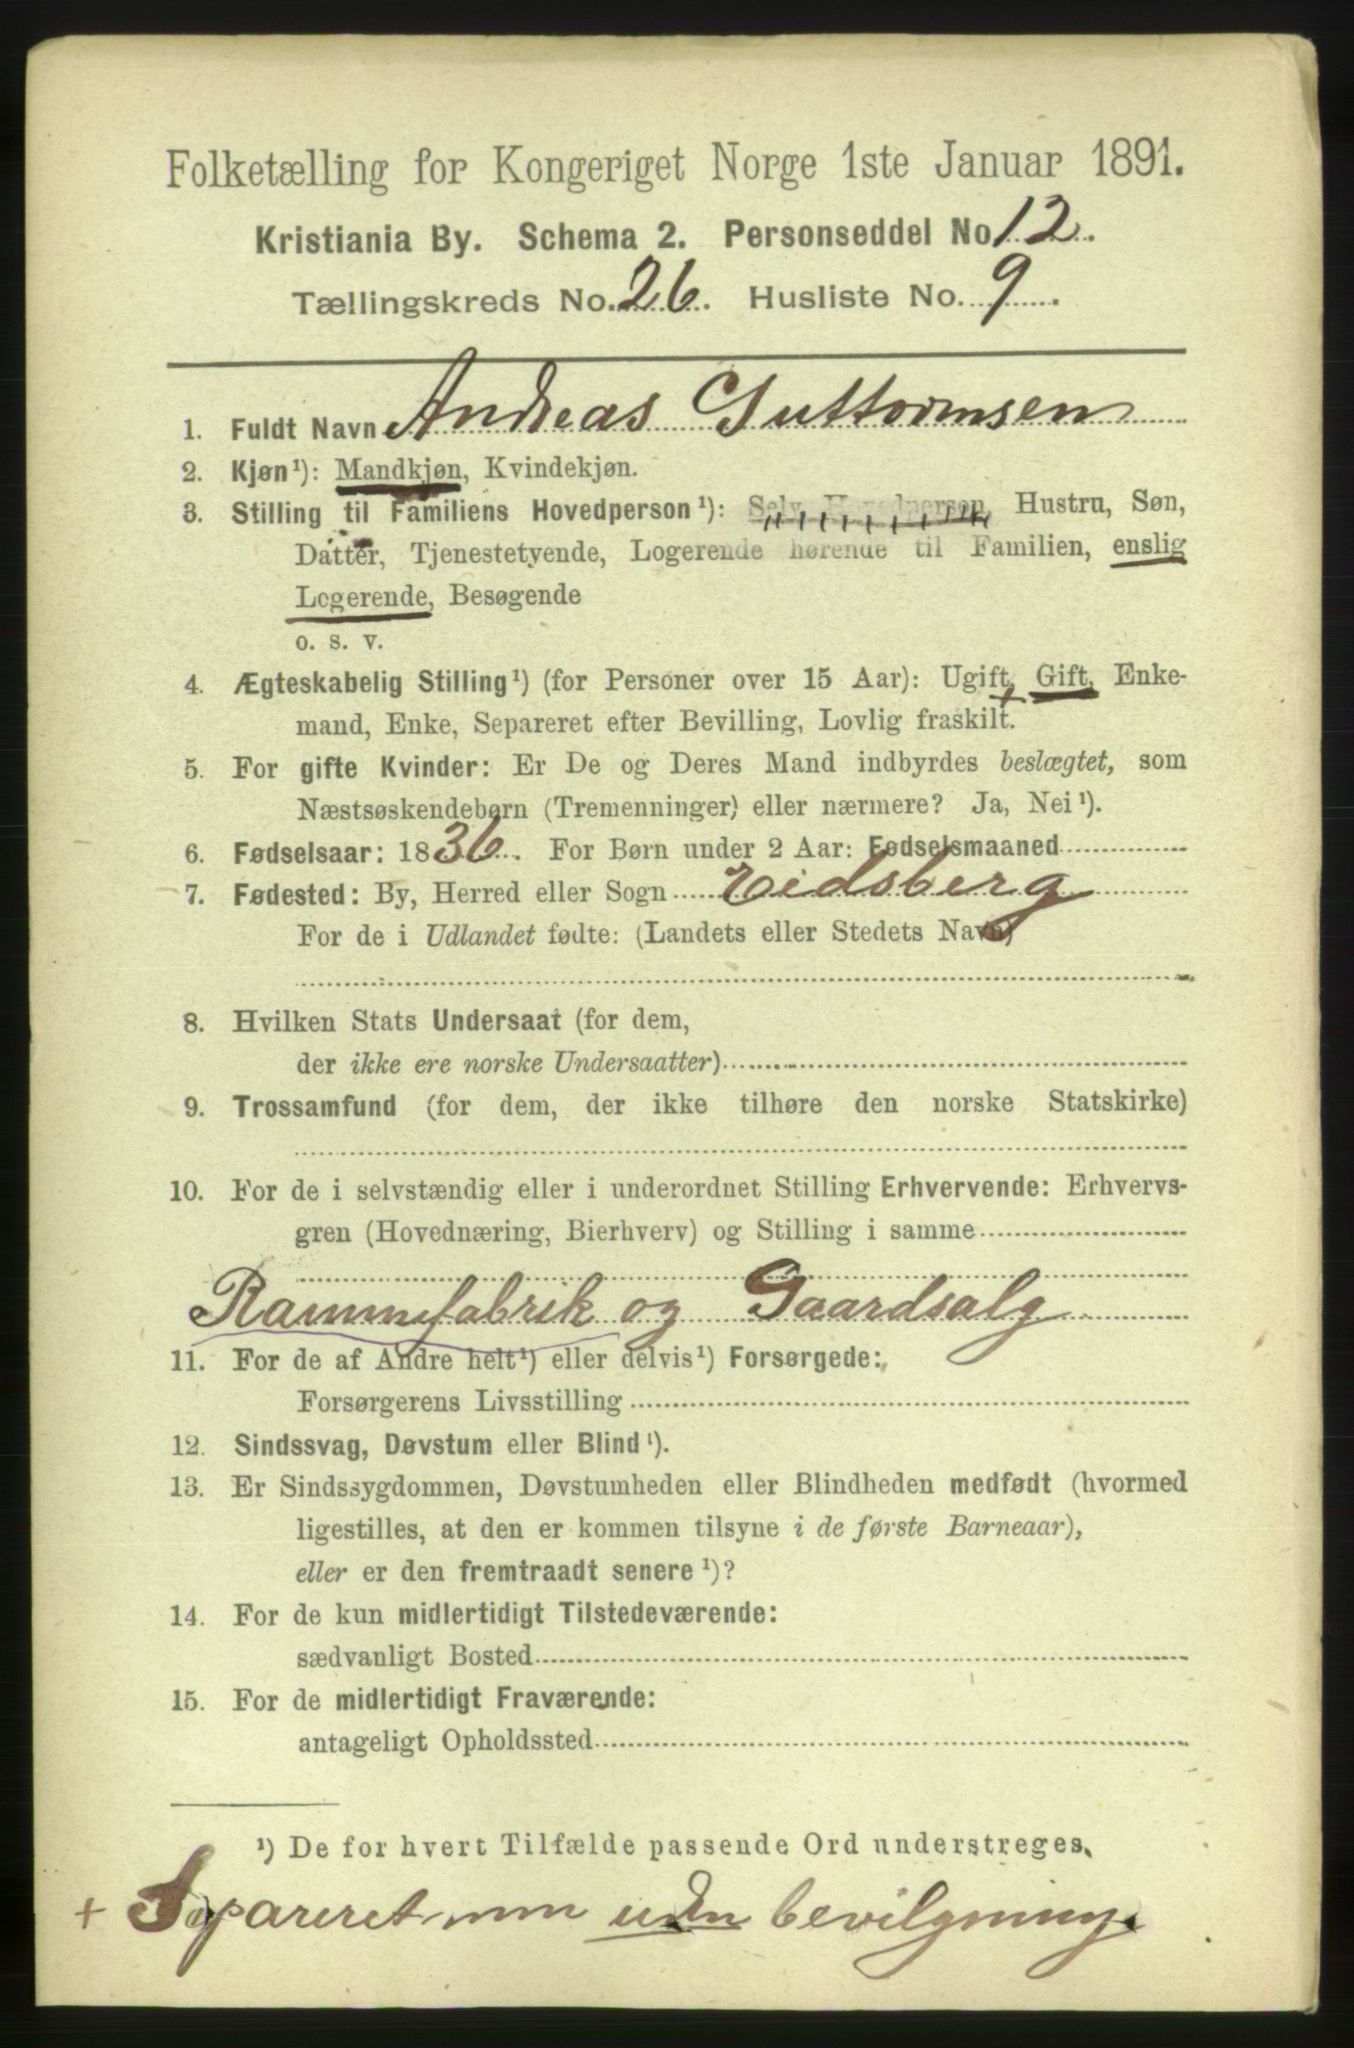 Folketælling for Kongeriget Norge 1ste Januar 1891.
Kristiania By. Schema 2. Personseddel No 12.
Tællingskreds No. 26. Husliste No. 9.
1. Fuldt Navn Andreas Guttormsen
2. Kjøn¹): Mandkjøn, Kvindekjøn.
3. Stilling til Familiens Hovedperson¹): Selv Hovedperson, Hustru, Søn,
Datter, Tjenestetyende, Logerende hørende til Familien, enslig
Logerende, Besøgende
o. s. v.
4. Ægteskabelig Stilling¹) (for Personer over 15 Aar): Ugift, + Gift, Enke-
mand, Enke, Separeret efter Bevilling, Lovlig fraskilt.
5. For gifte Kvinder: Er De og Deres Mand indbyrdes beslægtet, som
Næstsøskendebørn (Tremenninger) eller nærmere? Ja, Nei¹).
6. Fødselsaar: 1836. For Børn under 2 Aar: Fødselsmaaned
7. Fødested: By, Herred eller Sogn Eidsberg
For de i Udlandet fødte: (Landets eller Stedets Navn)
8. Hvilken Stats Undersaat (for dem,
der ikke ere norske Undersaatter)
9. Trossamfund (for dem, der ikke tilhøre den norske Statskirke)
10. For de i selvstændig eller i underordnet Stilling Erhvervende: Erhvervs-
gren (Hovednæring, Bierhverv) og Stilling i samme
Rammefabrik og Gaardsalg
11. For de af Andre helt¹) eller delvis¹) Forsørgede:
Forsørgerens Livsstilling
12. Sindssvag, Døvstum eller Blind¹).
13. Er Sindssygdommen, Døvstumheden eller Blindheden medfødt (hvormed
ligestilles, at den er kommen tilsyne i de første Barneaar),
eller er den fremtraadt senere¹)?
14. For de kun midlertidigt Tilstedeværende:
sædvanligt Bosted
15. For de midlertidigt Fraværende:
antageligt Opholdssted
¹) De for hvert Tilfælde passende Ord understreges.
+ Separeret men uden bevilgning.